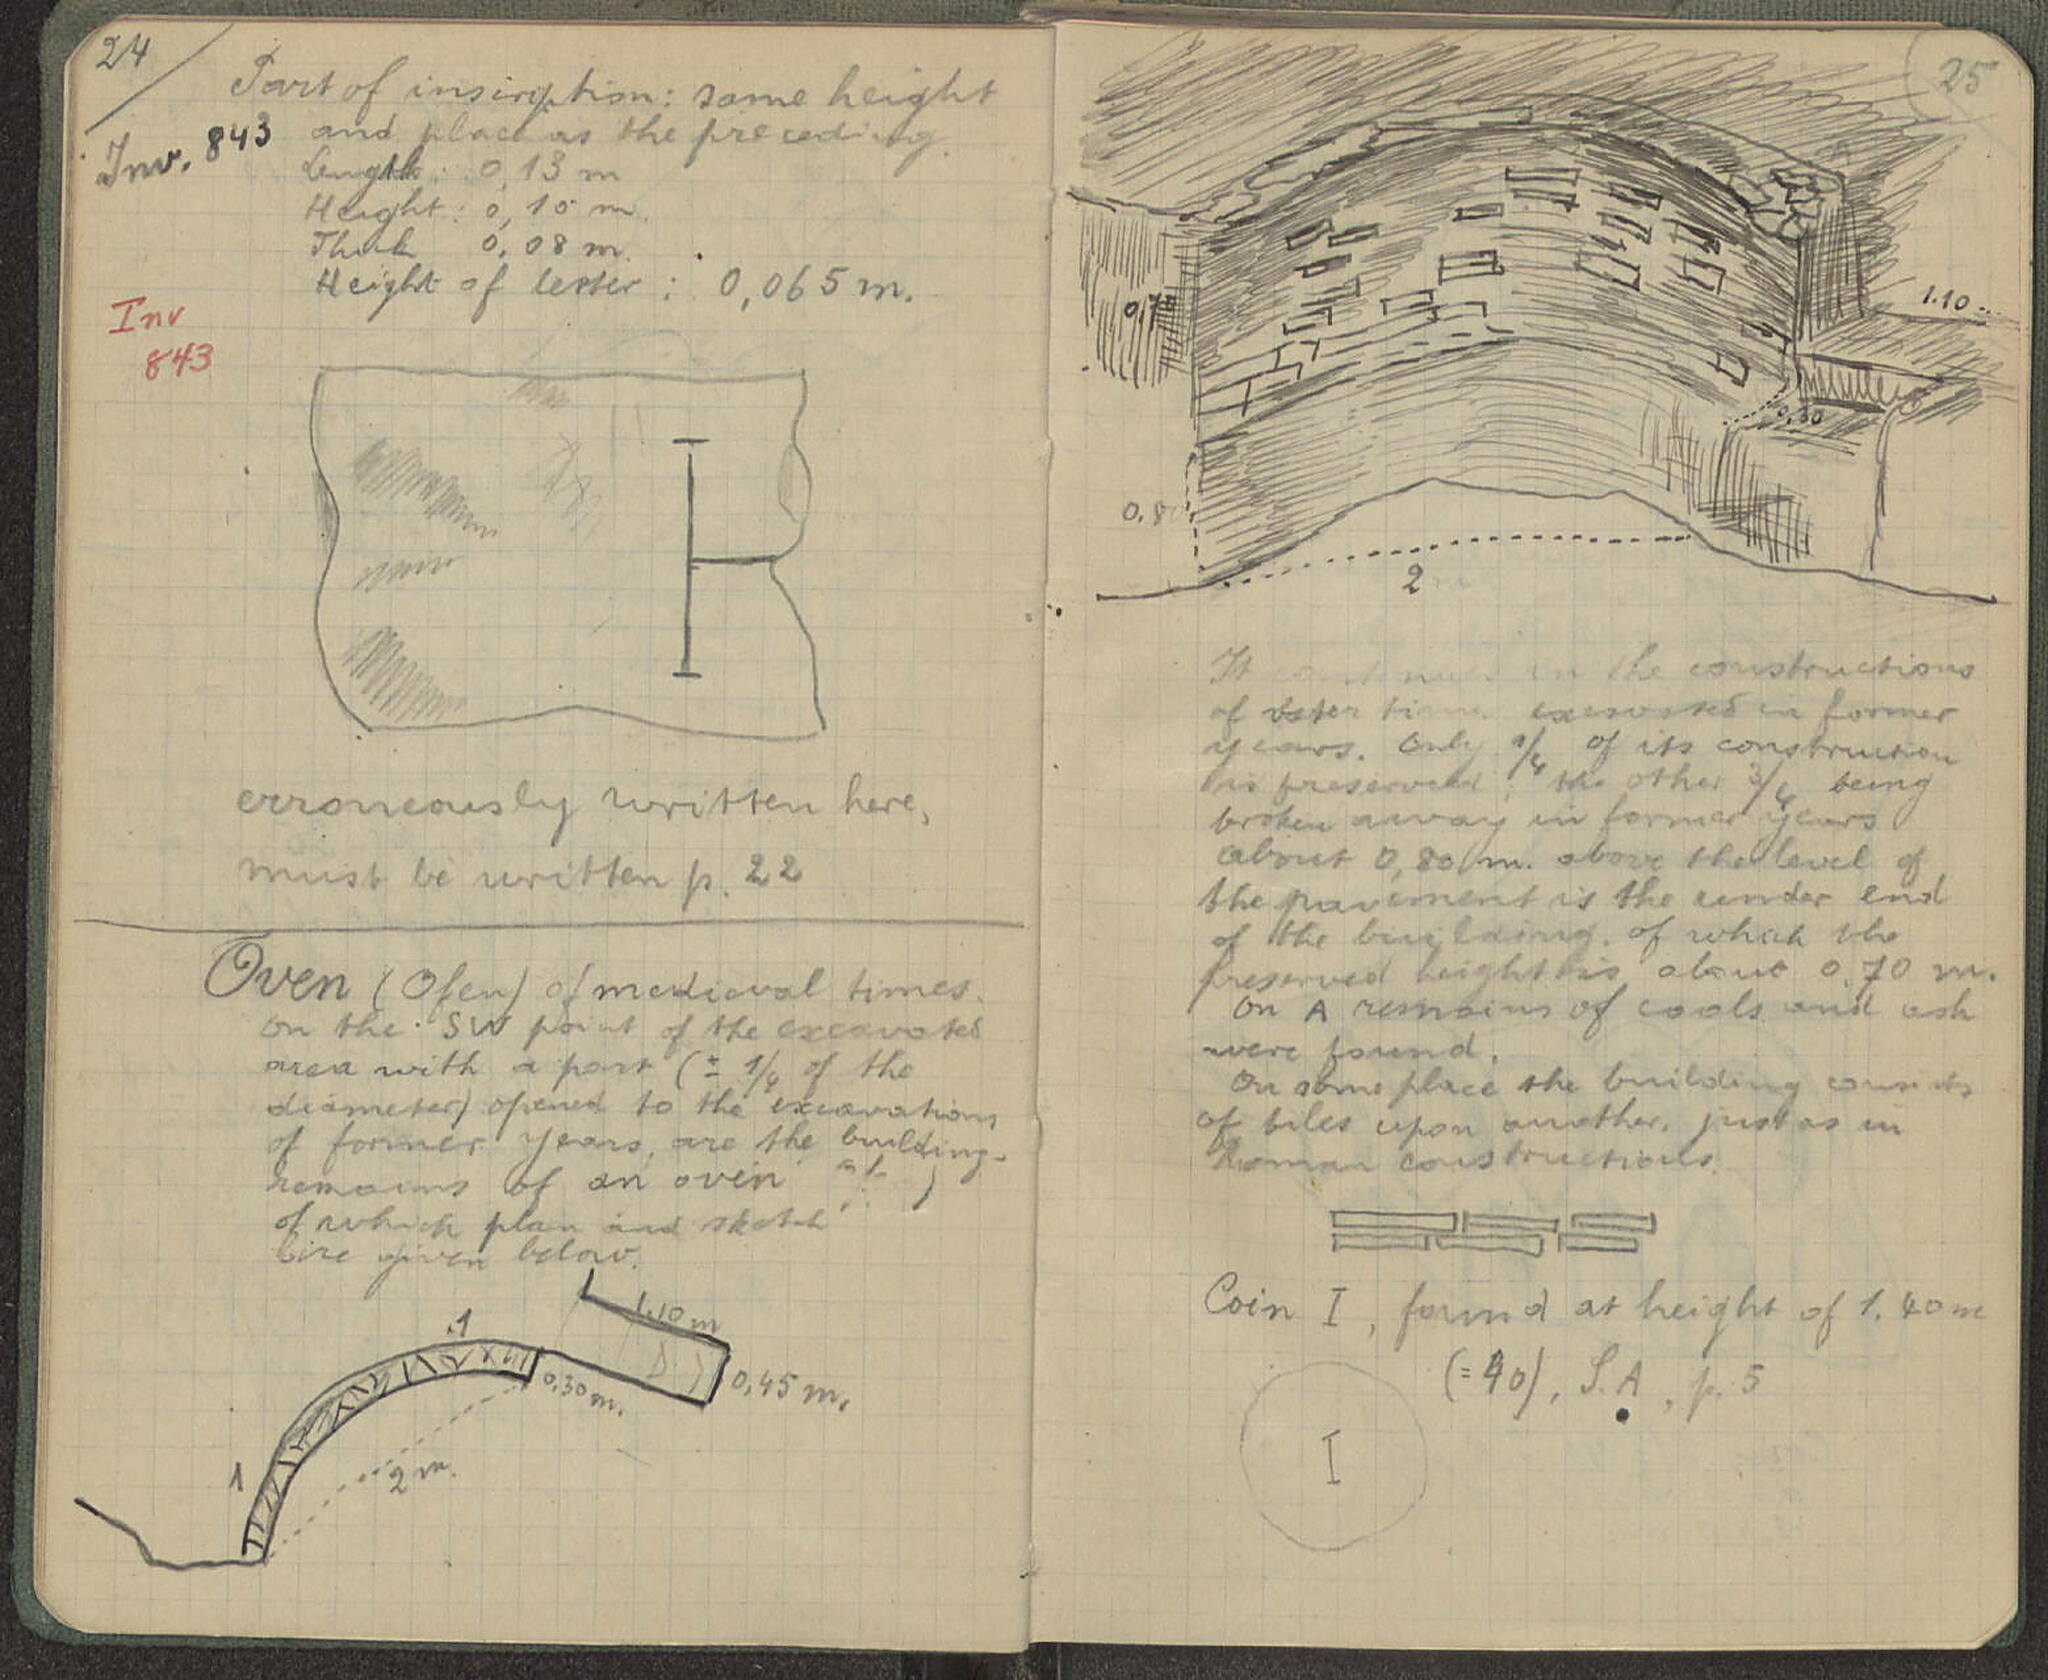 24
Part of insiription: same height
Inv. 843 and place as the preceding.
Length: 0,13 m
Height: 0,10 m.
Thick 0,08 m.
Height of letter: 0,065 m.
Inv
843
erroneously written here,
must be written p. 22
Oven (Ofen) of medieval times.
On the SW point of the excavated
area with a part (± 1/4 of the
diameter) opened to the excavations
of former years, are the building-
remains of an oven
of which plan and sketch
are given below.
1.10 m
1
0,30 m.
0,45 m.
2 m.
1
25
0,70
1.10
0,30
0,80
2 m
It in the constructions
of later time excavated in former
years. Only 1/4 of its construction
is preserved, the other 3/4 being
broken away in former years
About 0,80 m. above the level of
the pavement is the under end
of the building, of which the
preserved height is about 0,70 m.
On A remains of coals and ash
were found.
On some place the building consists
of tiles upon another, just as in
Roman constructions.
Coin I, found at height of 1.40 m
(=40), S.A, p. 5
I